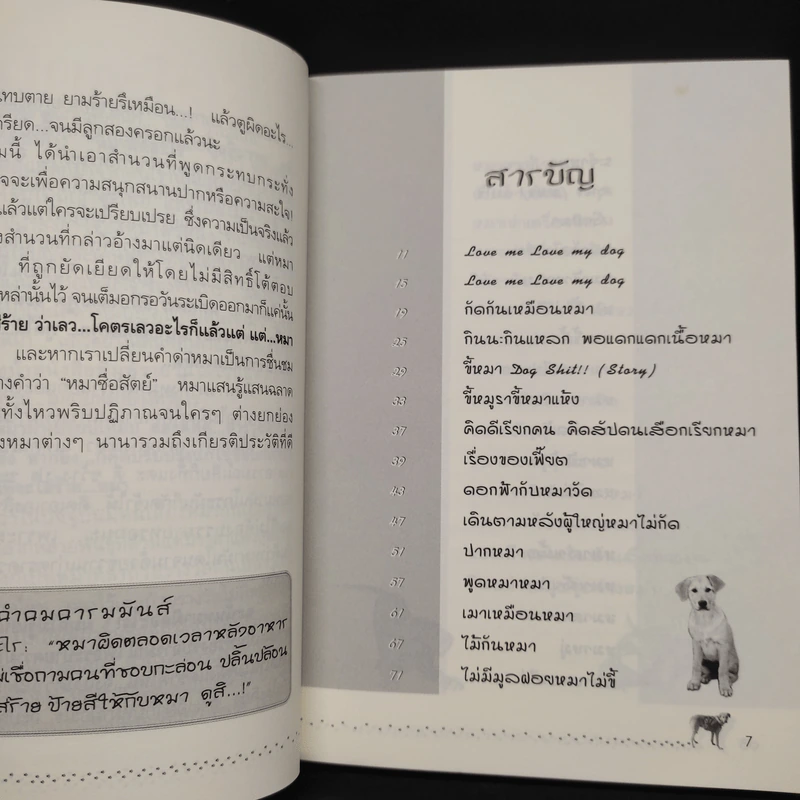 นทบตาย ยามร้ายรึเหมือน...! แล้วตูผิดอะไร...
ครียด...จนมีลูกสองครอกแล้วนะ
มนี้ ได้นำเอาสำนวนที่พูดกระทบกระทั่ง
จจะเพื่อความสนุกสนานปากหรือความสะใจ!
แล้วแต่ใครจะเปรียบเปรย ซึ่งความเป็นจริงแล้ว
งสำนวนที่กล่าวอ้างมาแต่นิดเดียว แต่หมา
ที่ถูกยัดเยียดให้โดยไม่มีสิทธิ์โต้ตอบ
หล่านั้นไว้ จนเต็มอกรอวันระเบิดออกมาก็แค่นั้น
ร้าย ว่าเลว...โคตรเลวอะไรก็แล้วแต่ แต่...หมา
และหากเราเปลี่ยนคำด่าหมาเป็นการชื่นชม
างคำว่า "หมาซื่อสัตย์" หมาแสนรู้แสนฉลาด
ทั้งไหวพริบปฏิภาณจนใครๆ ต่างยกย่อง
งหมาต่างๆ นานารวมถึงเกียรติประวัติที่ดี
"หมาผิดตลอดเวลาหลังอาหาร
เชื่อถามฅนที่ชอบกะล่อน ปลิ้นปล้อน
สร้าย ป้ายสีให้กับหมา ดูสิ...!"
สารบัญ
11 Love me Love my dog
15 Love me Love my dog
19 กัดกันเหมือนหมา
23 กินนะกินแหลก พอแดกแดกเนื้อหมา
29 ขี้หมา Dog Shit!! (Story)
33 ขี้หมูราขี้หมาแห้ง
37 คิดดีเรียกคน คิดสัปดนเสือกเรียกหมา
39 เรื่องของเฟี๊ยต
43 ดอกฟ้ากับหมาวัด
47 เดินตามหลังผู้ใหญ่หมาไม่กัด
51 ปากหมา
57 พูดหมาหมา
61 เมาเหมือนหมา
67 ไม้กันหมา
71 ไม่มีมูลฝอยหมาไม่ขี้
7